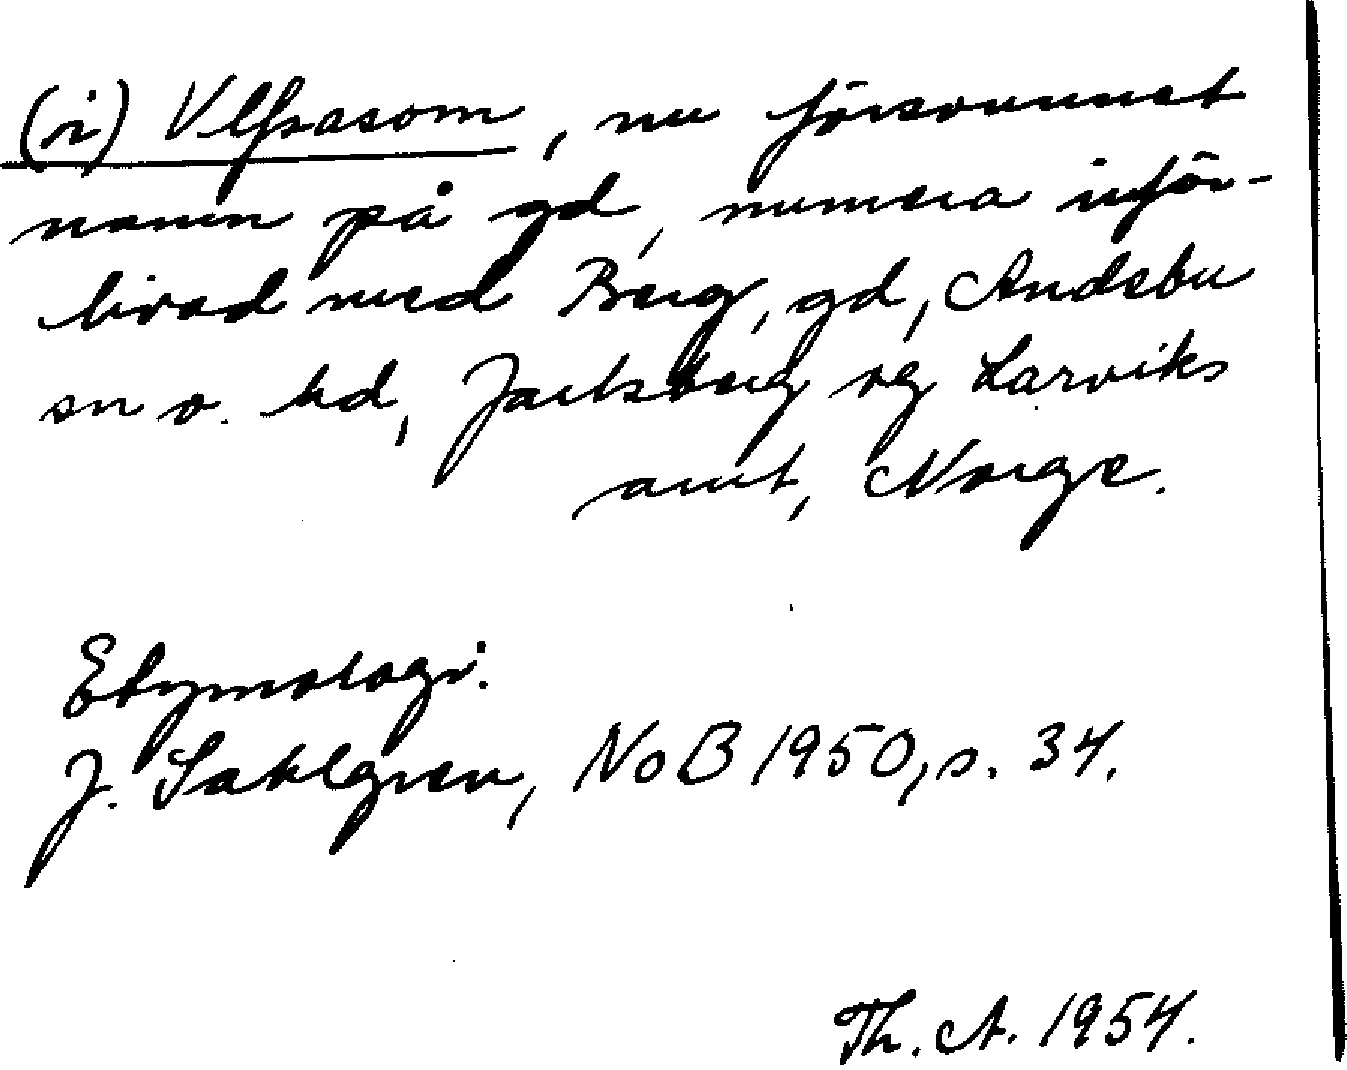 (i) Vlfsasom, nu försvunnet
namn på gd, numera inför-
livad med Berg, gd, Andebu
sn o. hd, Jarlsberg og Larviks
amt, Norge.
Etymologi:
J. Sahlgren, NoB 1950, s. 34.
Th. A. 1954.